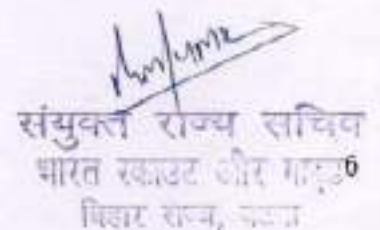 संयुक्त राज्य सचिव
भारत स्काउट और गाइड 6
बिहार राज्य, पटना